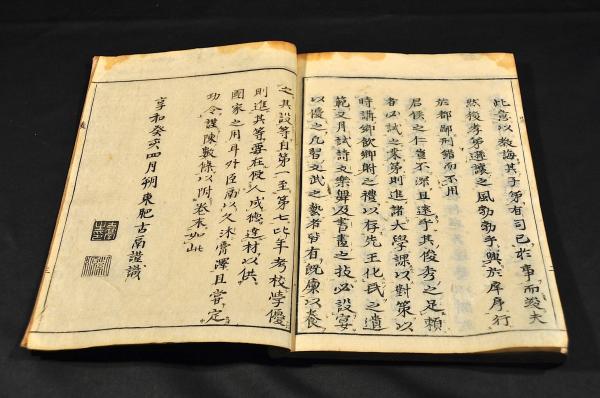 此意以教誨其子弟有司已於事而竣夫
然後孝弟遜讓之風勃勃乎興於庠序行
於都鄙刑錯而不用
君侯之仁豈不深且遠乎其俊秀之足頼
者必試之業第則進諸大學課以對策以
時講鄉飲鄉射之禮以存先王化民之遺
範文月試詩文樂舞及書畫之技必設宴
以優之凡習文武之藝者皆有既廩以養
之其設等自第一至第七比年考校學優
則進其等要在使人成德達材以供
國家之用耳外臣鬲以久沐膏澤且嘗定
功令謹陳數條以附卷末如此
享和癸亥四月朔東肥古鬲謹識